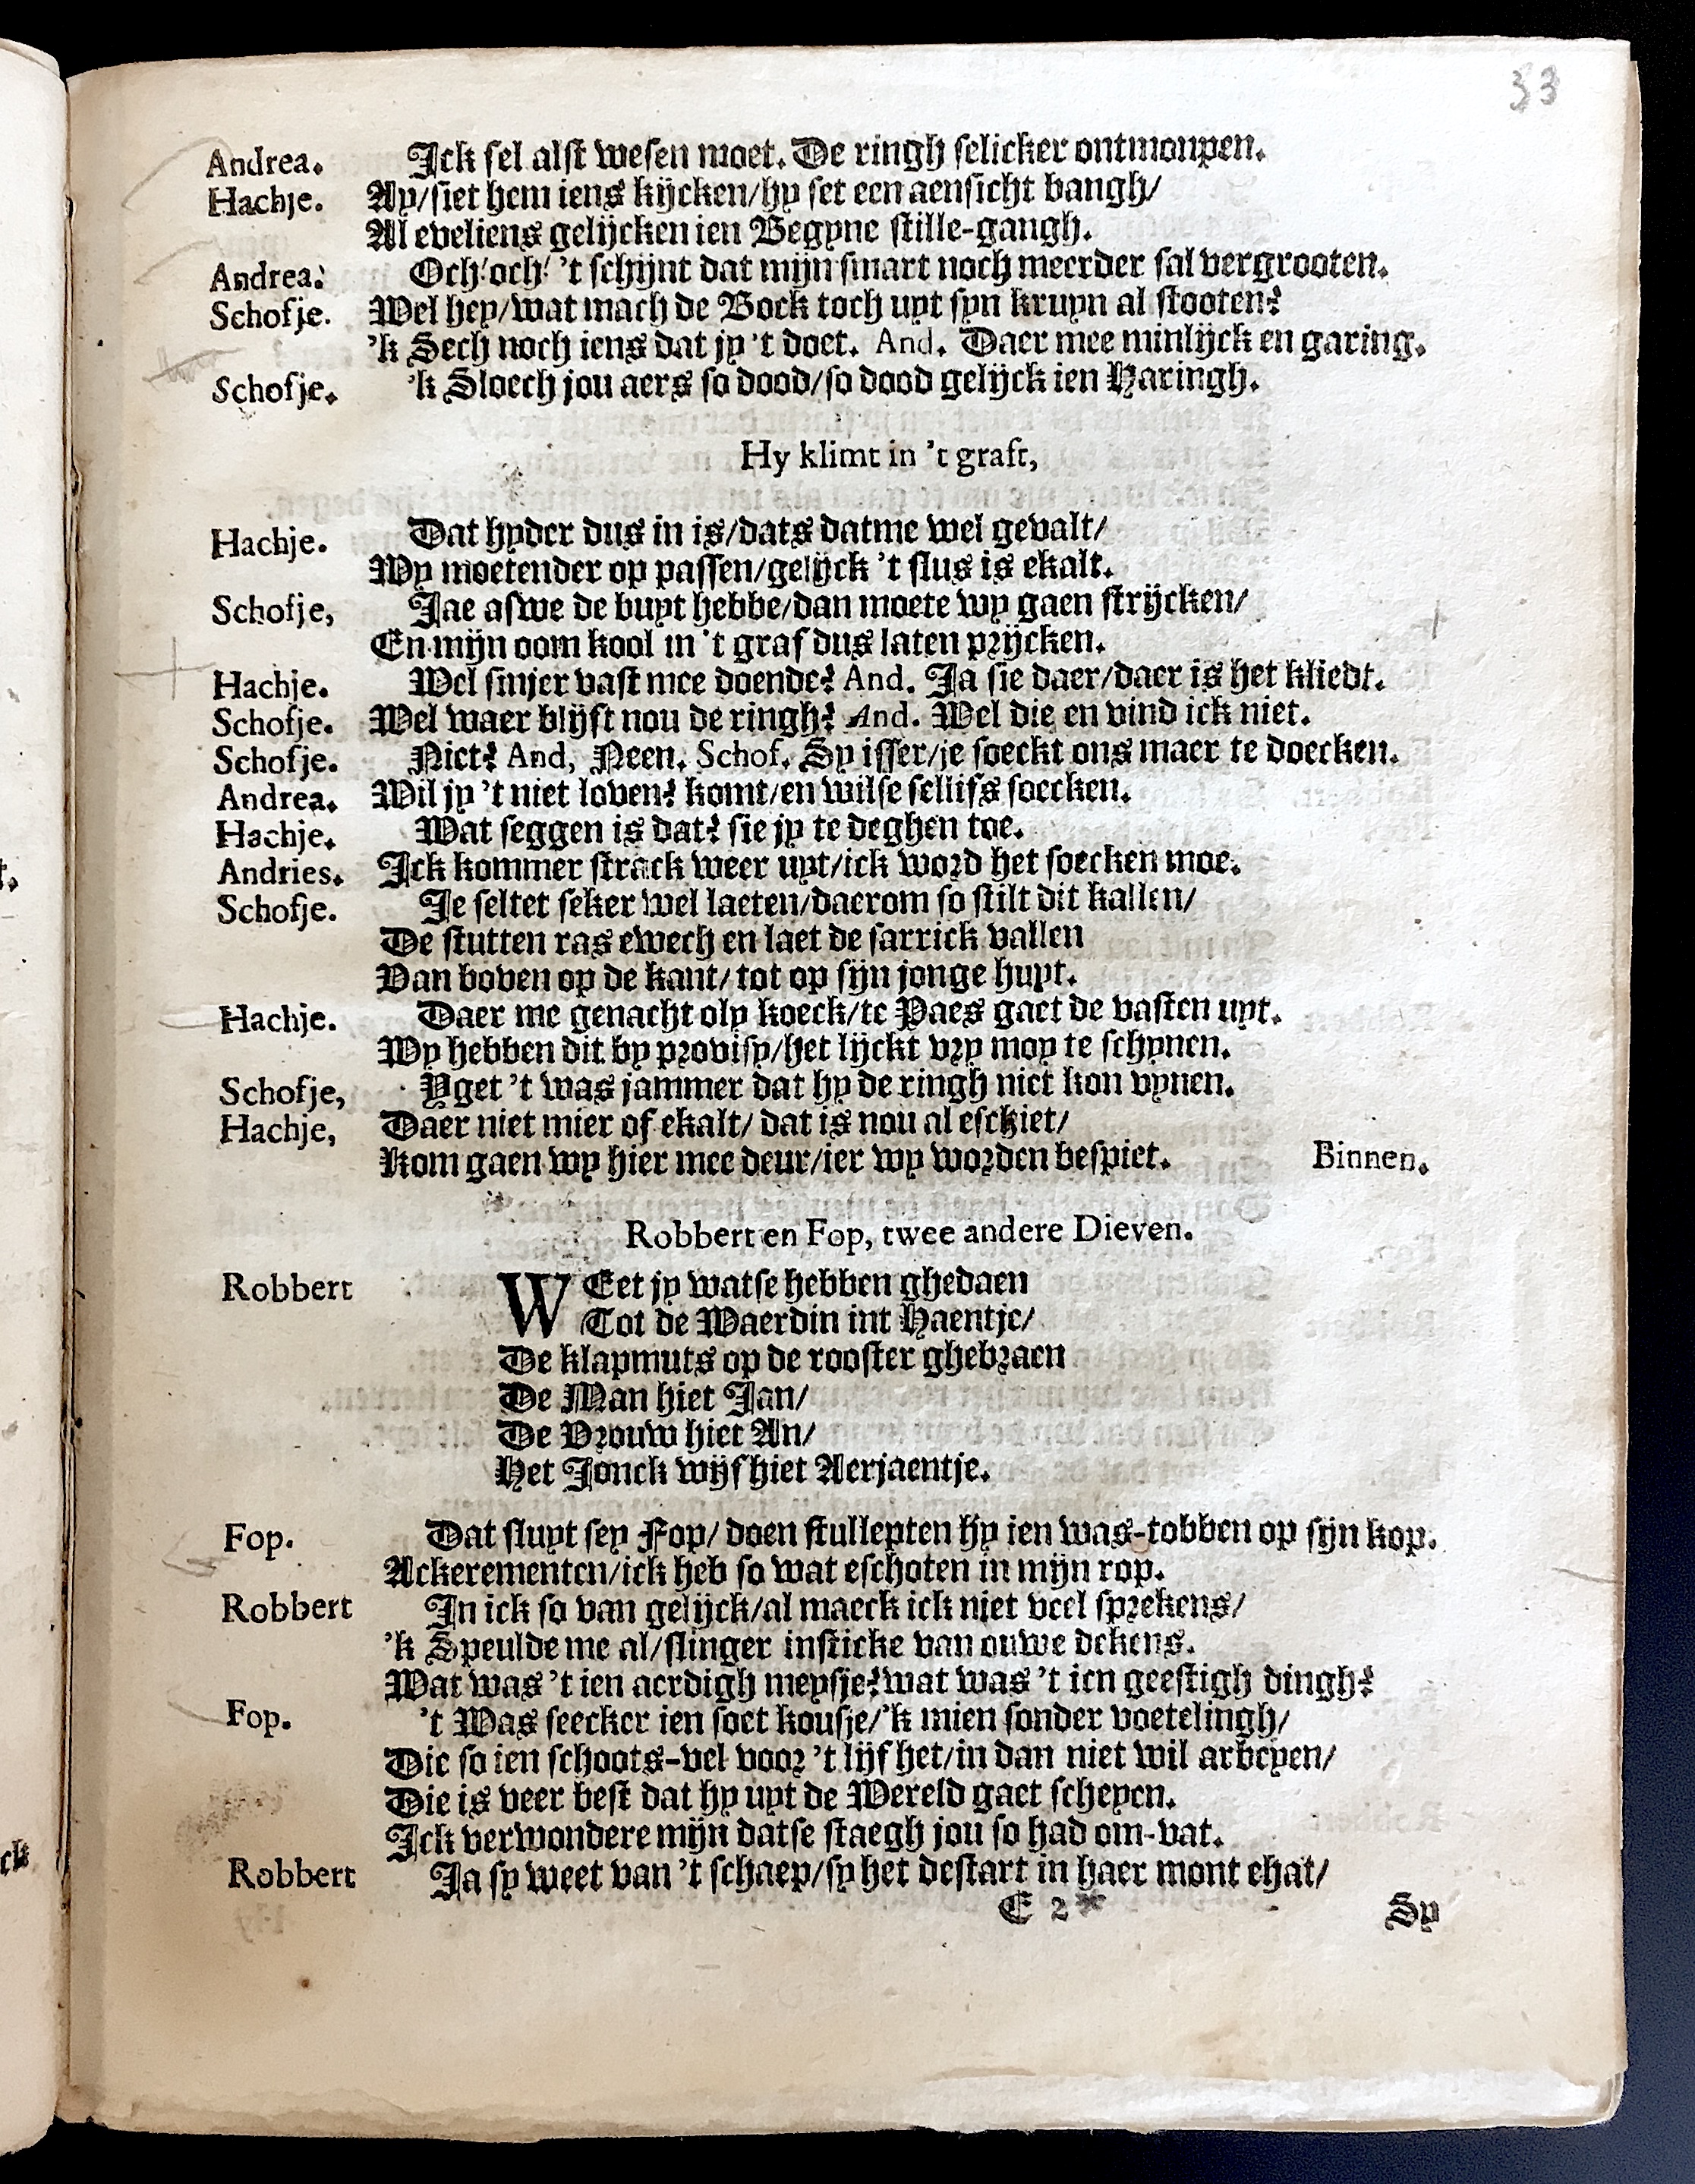 33
Andrea. Ick sel alst wesen moet. De ringh selicker ontmoupen.
Hachje. Ay/siet hem iens kijcken/hy set een aensicht bangh/
Al eveliens gelijcken ien Begyne stille-gangh.
Andrea. Och! och! 't schijnt dat mijn smart noch meerder sal vergrooten.
Schofje. Wel hey/wat mach de Bock toch uyt syn kruyn al stooten?
'k Sech noch iens dat jy 't doet. And. Daer mee minlijck en garing.
Schofje. 'k Sloech jou aers so dood/so dood gelijck ien Haringh.
Hy klimt in 't graft,
Hachje. Dat hyder dus in is/dats datme wel gevalt/
Wy moetender op passen/gelijck 't flus is ekalt.
Schofje, Jae aswe de buyt hebbe/dan moete wy gaen strijcken/
En mijn oom kool in 't graf dus laten prijcken.
Hachje. Wel sinjer vast mee doende? And. Ja sie daer/daer is het kliedt.
Schofje. Wel waer blijft nou de ringh? And. Wel die en vind ick niet.
Schofje. Niet? And, Neen. Schof. Sy isser/je soeckt ons maer te doecken.
Andrea. Wil jy 't niet loven? komt/en wilse sellifs soecken.
Hachje. Wat seggen is dat? sie jy te deghen toe.
Andries. Ick kommer strack weer uyt/ick word het soecken moe.
Schofje. Je seltet seker wel laeten/daerom so stilt dit kallen/
De stutten ras ewech en laet de sarrick vallen
Van boven op de kant/tot op sijn jonge huyt.
Hachje. Daer me genacht oly koeck/te Paes gaet de vasten uyt.
Wy hebben dit by provisy/het lijckt vry moy te schynen.
Schofje, Yget 't was jammer dat hy de ringh niet kon vynen.
Hachje, Daer niet mier of ekalt/dat is nou al eschiet/
Kom gaen wy hier mee deur/ier wy worden bespiet. Binnen.
Robbert en Fop, twee andere Dieven.
Robbert WEet jy watse hebben ghedaen
Tot de Waerdin int Haentje/
De klapmuts op de rooster ghebraen
De Man hiet Jan/
De Vrouw hiet An/
Het Jonck wijf hiet Aerjaentje.
Fop. Dat sluyt sey Fop/doen stullepten hy ien was-tobben op sijn kop.
Ackerementen/ick heb so wat eschoten in mijn rop.
Robbert In ick so van gelijck/al maeck ick niet veel sprekens/
'k Speulde me al/slinger insticke van ouwe dekens.
Wat was 't ien aerdigh meysje? wat was 't ien geestigh dingh?
Fop. 't Was seecker ien soet kousje/'k mien sonder voetelingh/
Die so ien schoots-vel voor 't lijf het/in dan niet wil arbeyen/
Die is veer best dat hy uyt de Wereld gaet scheyen.
Ick verwondere mijn datse staegh jou so had om-vat.
Robbert Ja sy weet van 't schaep/sy het destart in haer mont ehat/
E 2* Sy